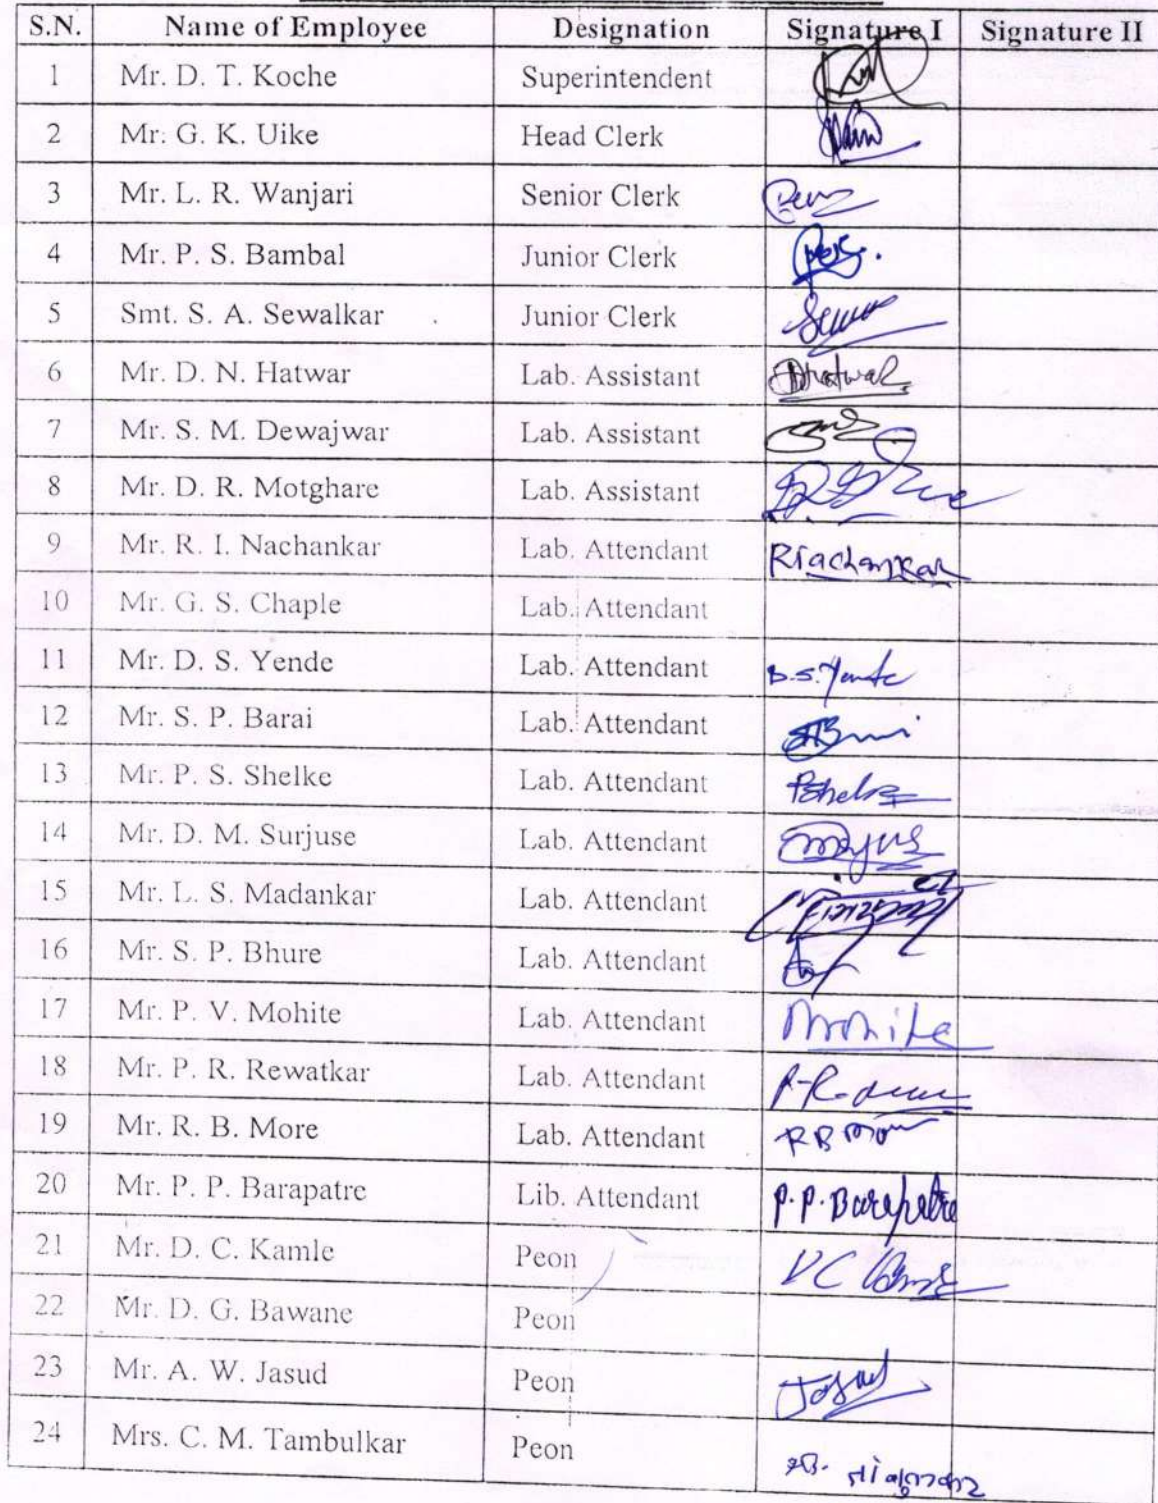 S.N. Name of Employee Designation Signature I Signature II
1 Mr. D. T. Koche Superintendent
2 Mr. G. K. Uike Head Clerk
3 Mr. L. R. Wanjari Senior Clerk
4 Mr. P. S. Bambal Junior Clerk
5 Smt. S. A. Sewalkar Junior Clerk
6 Mr. D. N. Hatwar Lab. Assistant
7 Mr. S. M. Dewajwar Lab. Assistant
8 Mr. D. R. Motghare Lab. Assistant
9 Mr. R. I. Nachankar Lab. Attendant
10 Mr. G. S. Chaple Lab. Attendant
11 Mr. D. S. Yende Lab. Attendant D.S. Yende
12 Mr. S. P. Barai Lab. Attendant
13 Mr. P. S. Shelke Lab. Attendant PShelke
14 Mr. D. M. Surjuse Lab. Attendant
15 Mr. L. S. Madankar Lab. Attendant
16 Mr. S. P. Bhure Lab. Attendant
17 Mr. P. V. Mohite Lab. Attendant Mohite
18 Mr. P. R. Rewatkar Lab. Attendant
19 Mr. R. B. More Lab. Attendant RB More
20 Mr. P. P. Barapatre Lib. Attendant P. P. Barapatre
21 Mr. D. C. Kamle Peon
22 Mr. D. G. Bawane Peon
23 Mr. A. W. Jasud Peon Jasud
24 Mrs. C. M. Tambulkar Peon